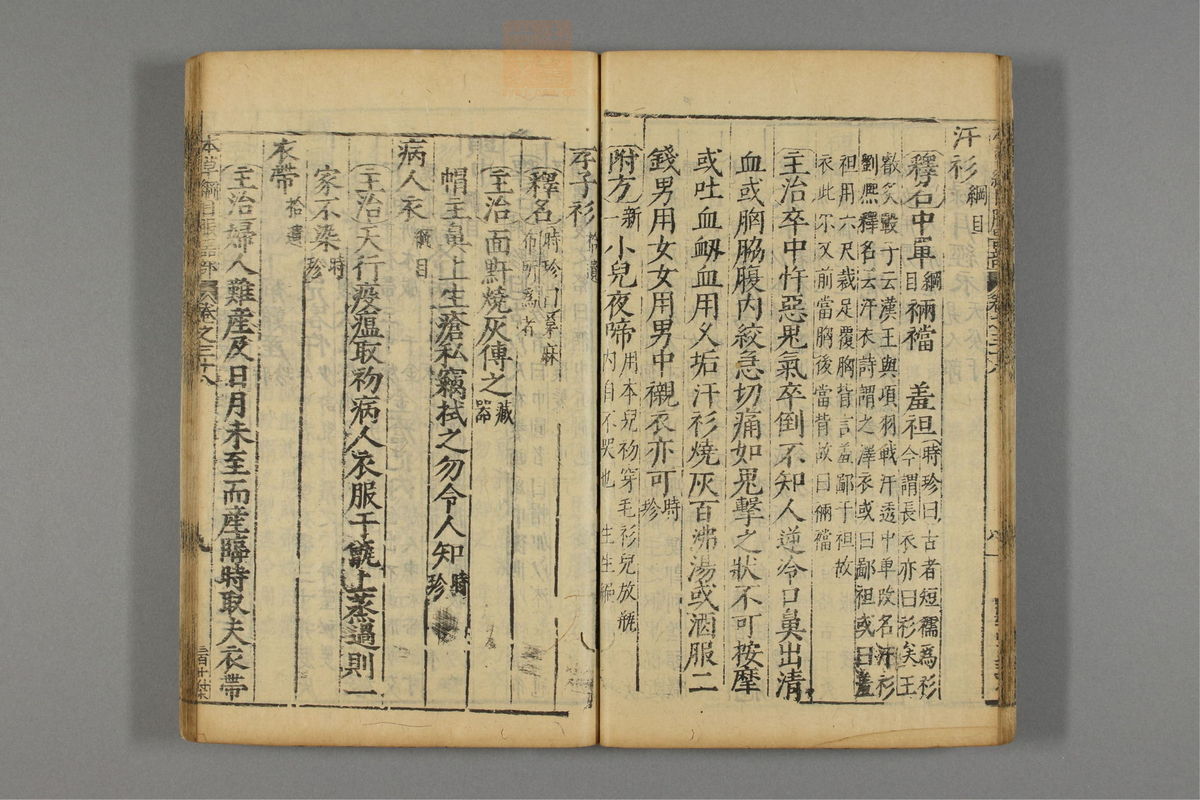 汗衫綱目
釋名中單綱目裲襠 羞袒時珍曰古者短襦為衫
今謂長衣亦曰衫矣王
叡炙轂子云漢王與項羽戰汗透中單改名汗衫
劉熙釋名云汗衣詩謂之澤衣或曰鄙袒或曰羞
袒用六尺裁足覆胸背言羞鄙于袒故
衣此尔又前當胸後當背故曰裲襠
主治卒中忤惡鬼氣卒倒不知人逆冷口鼻出清
血或胸脇腹內絞急切痛如鬼擊之狀不可按摩
或吐血衂血用久垢汗衫燒灰百沸湯或酒服二
錢男用女女用男中襯衣亦可時珍
附方新一小兒夜啼用本兒初穿毛衫兒放瓶
內自不哭也 生生編
孝子衫拾遺
釋名時珍曰枲麻
布所為者
主治面䵟燒灰傅之藏器
帽主鼻上生瘡私竊拭之勿令人知時珍
病人衣綱目
主治天行疫瘟取初病人衣服于甑上蒸過則一
家不染時珍
衣帶拾遺
主治婦人難産及日月未至而産臨時取夫衣帶
本草綱目服器部 卷之三十八 九